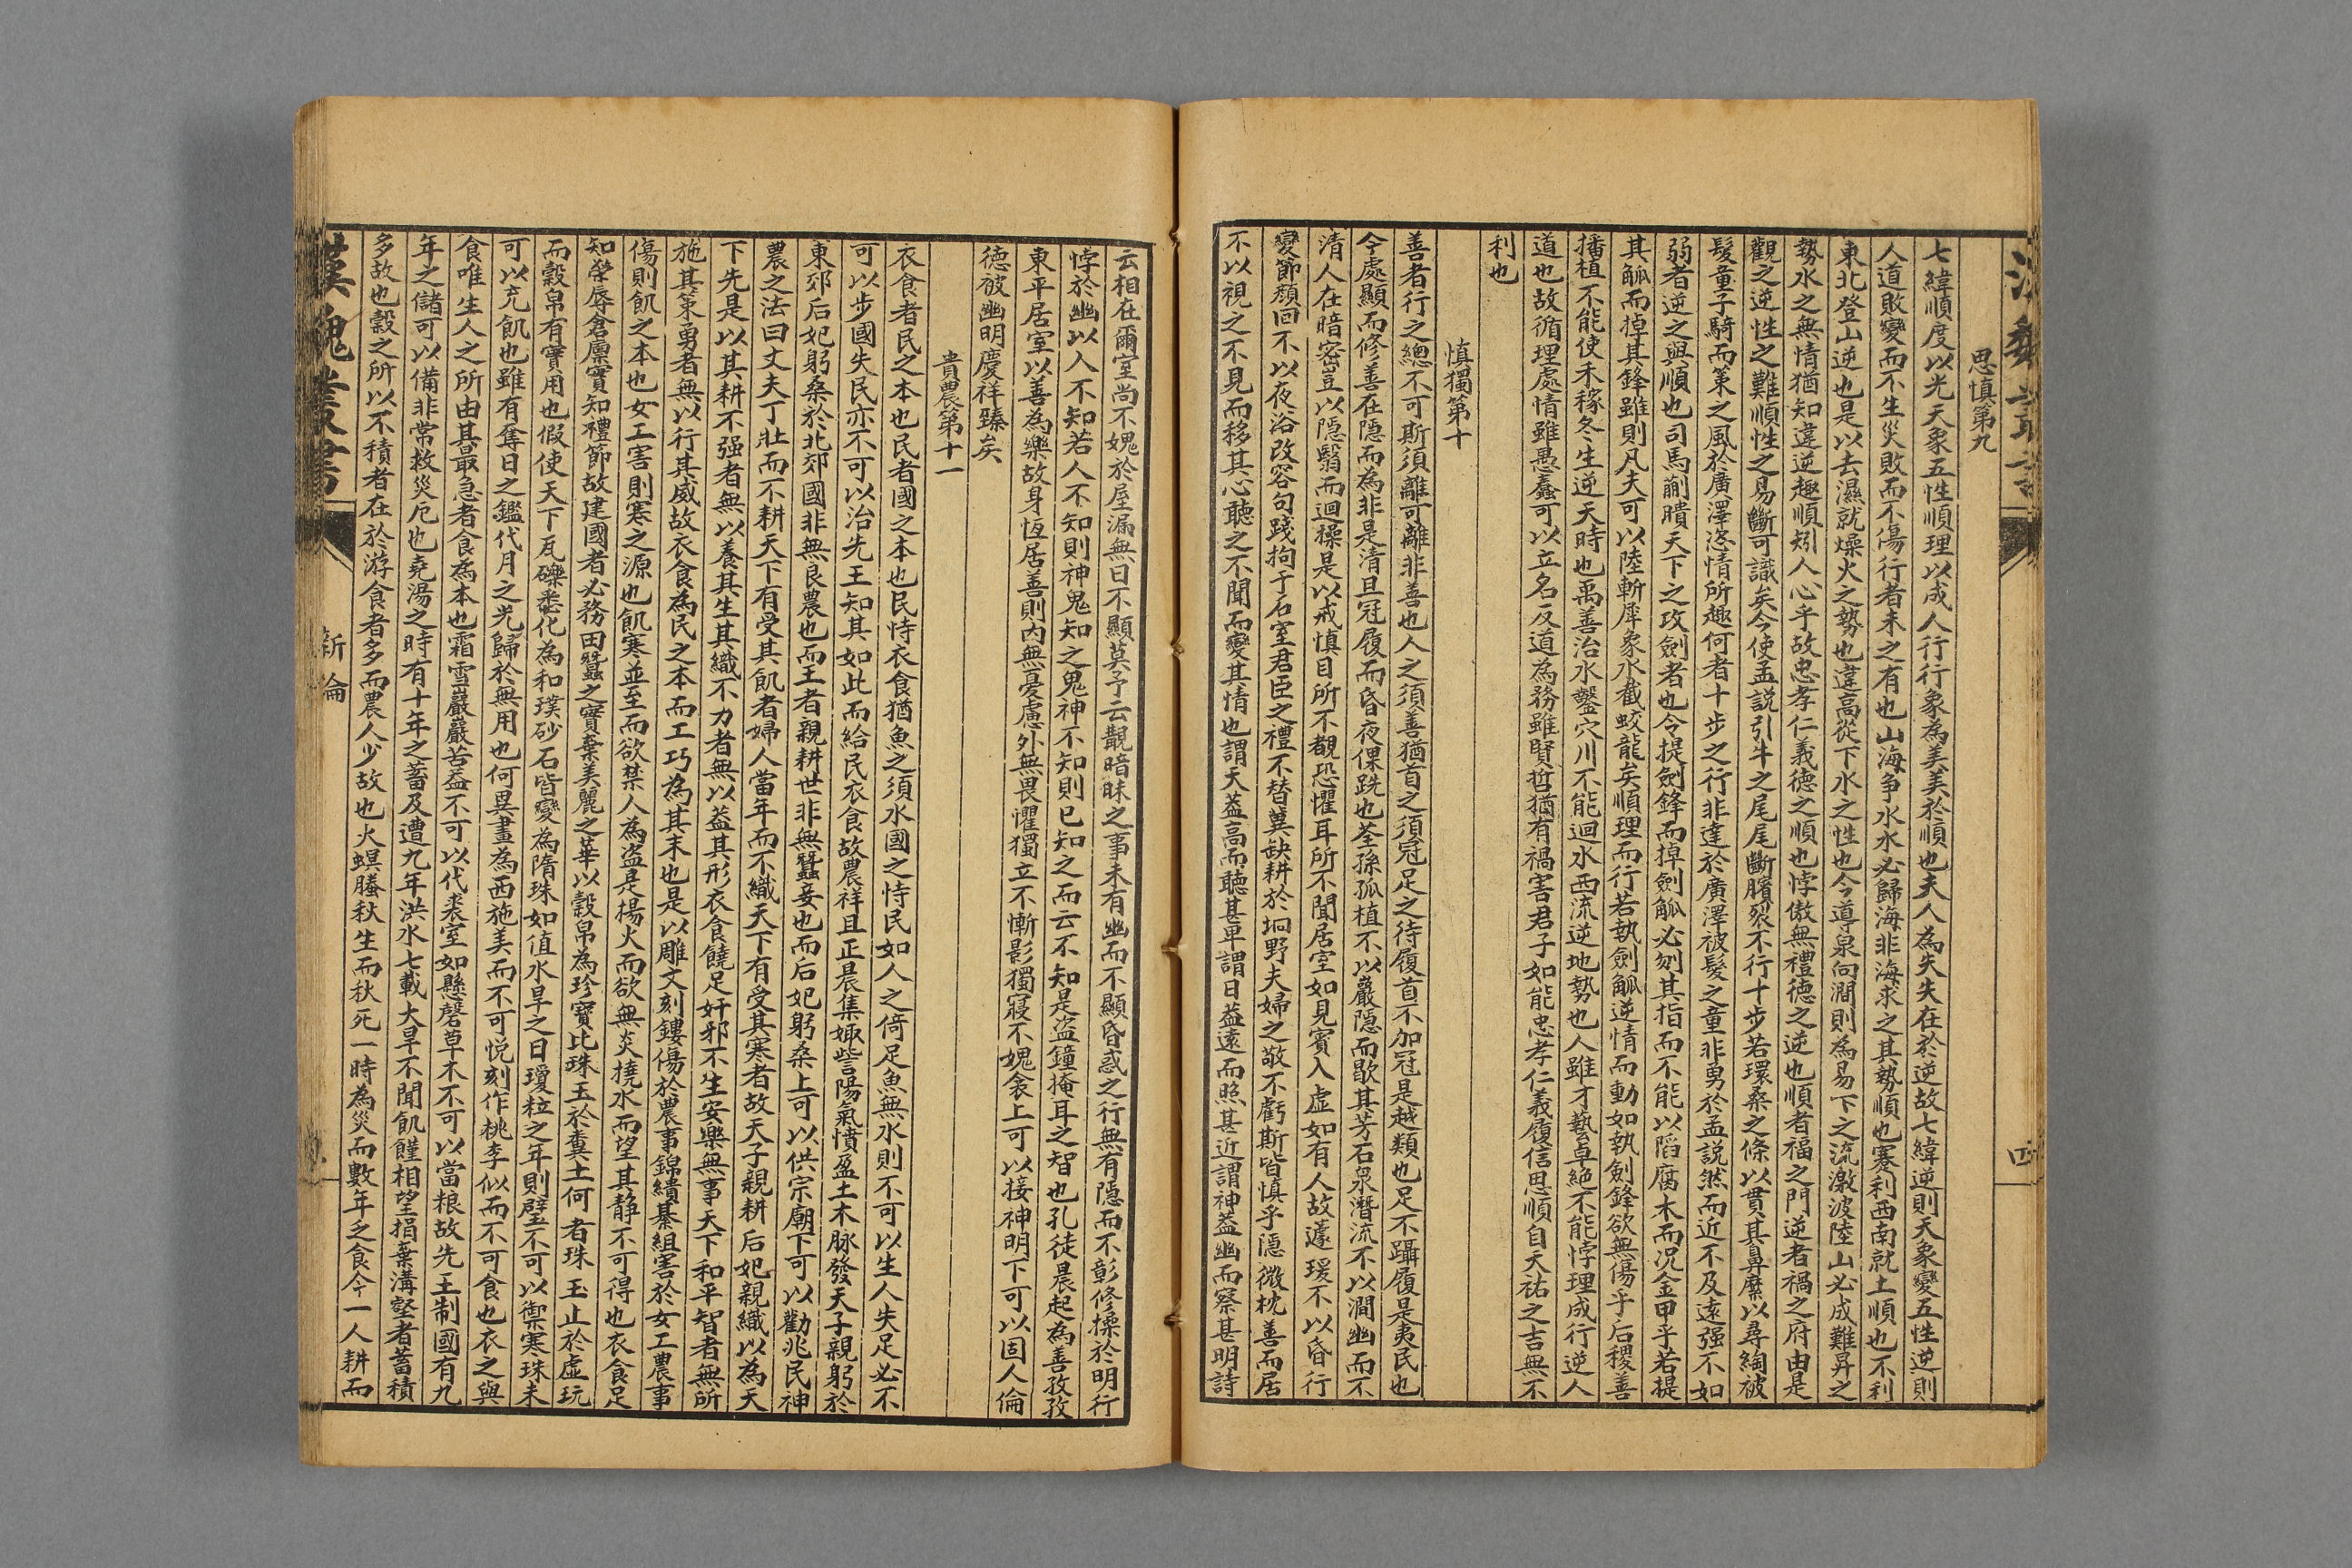 思慎第九
七緯順度以光天象五性順理以成人行行象為美美於順也夫人為失失在於逆故七緯逆則天象變五性逆則
人道敗變而不生災敗而不傷行者未之有也山海爭水水必歸海非海求之其勢順也蹇利西南就土順也不利
東北登山逆也是以去濕就燥火之勢也違高從下水之性也今導泉向澗則為易下之流激波陸山必成難昇之
勢水之無情猶知違逆趣順矧人心乎故忠孝仁義德之順也悖傲無禮德之逆也順者福之門逆者禍之府由是
觀之逆性之難順性之易斷可識矣今使孟說引牛之尾尾斷臏裂不行十步若環桑之條以貫其鼻縻以尋綯被
髮童子騎而策之風於廣澤恣情所趣何者十步之行非遠於廣澤被髮之童非勇於孟說然而近不及遠强不如
弱者逆之與順也司馬蒯聵天下之攻劍者也令提劍鋒而掉劍觚必刎其指而不能以陷腐木而況金甲乎若提
其觚而掉其鋒雖則凡夫可以陸斬犀象水截蛟龍矣順理而行若執劍觚逆情而動如執劍鋒欲無傷乎后稷善
播植不能使禾稼冬生逆天時也禹善治水鑿穴川不能迴水西流逆地勢也人雖才藝卓絕不能悖理成行逆人
道也故循理處情雖愚蠢可以立名反道為務雖賢哲猶有禍害君子如能忠孝仁義履信思順自天祐之吉無不
利也
慎獨第十
善者行之總不可斯須離可離非善也人之須善猶首之須冠足之待履首不加冠是越類也足不躡履是夷民也
今處顯而修善在隱而為非是清旦冠履而昏夜倮跣也荃孫孤植不以巖隱而歇其芳石泉潛流不以澗幽而不
清人在暗密豈以隱翳而迴操是以戒慎目所不覩恐懼耳所不聞居室如見賓入虛如有人故蘧瑗不以昏行
變節顏回不以夜浴改容句踐拘于石室君臣之禮不替冀缺耕於坰野夫婦之敬不虧斯皆慎乎隱微枕善而居
不以視之不見而移其心聽之不聞而變其情也謂天蓋高而聽甚卑謂日蓋遠而照甚近謂神蓋幽而察甚明詩
云相在爾室尚不媿於屋漏無曰不顯莫予云覯暗昧之事未有幽而不顯昏惑之行無有隱而不彰修操於明行
悖於幽以人不知若人不知則神鬼知之鬼神不知則已知之而云不知是盜鐘掩耳之智也孔徒晨起為善孜孜
東平居室以善為樂故身恆居善則內無憂慮外無畏懼獨立不慚影獨寢不媿衾上可以接神明下可以固人倫
德被幽明慶祥臻矣
貴農第十一
衣食者民之本也民者國之本也民恃衣食猶魚之須水國之恃民如人之倚足魚無水則不可以生人失足必不
可以步國失民亦不可以治先王知其如此而給民衣食故農祥旦正晨集娵訾陽氣憤盈土木脉發天子親躬於
東郊后妃躬桑於北郊國非無良農也而王者親耕世非無蠶妾也而后妃躬桑上可以供宗廟下可以勸兆民神
農之法曰丈夫丁壯而不耕天下有受其飢者婦人當年而不織天下有受其寒者故天子親耕后妃親織以為天
下先是以其耕不强者無以養其生其織不力者無以蓋其形衣食饒足奸邪不生安樂無事天下和平智者無所
施其策勇者無以行其威故衣食為民之本而工巧為其末也是以雕文刻鏤傷於農事錦繢綦組害於女工農事
傷則飢之本也女工害則寒之源也飢寒並至而欲禁人為盜是揚火而欲無炎撓水而望其靜不可得也衣食足
知榮辱倉廩實知禮節故建國者必務田蠶之實棄美麗之華以穀帛為珍寶比珠玉於糞土何者珠玉止於虛玩
而穀帛有實用也假使天下瓦礫悉化為和璞砂石皆變為隋珠如值水旱之日瓊粒之年則璧不可以禦寒珠未
可以充飢也雖有奪日之鑑代月之光歸於無用也何異畫為西施美而不可悅刻作桃李似而不可食也衣之與
食唯生人之所由其最急者食為本也霜雪巖巖苦蓋不可以代裘室如懸磬草木不可以當粮故先王制國有九
年之儲可以備非常救災厄也堯湯之時有十年之蓄及遭九年洪水七載大旱不聞飢饉相望捐棄溝壑者蓄積
多故也穀之所以不積者在於游食者多而農人少故也火螟螣秋生而秋死一時為災而數年乏食今一人耕而
漢魏叢書
新論